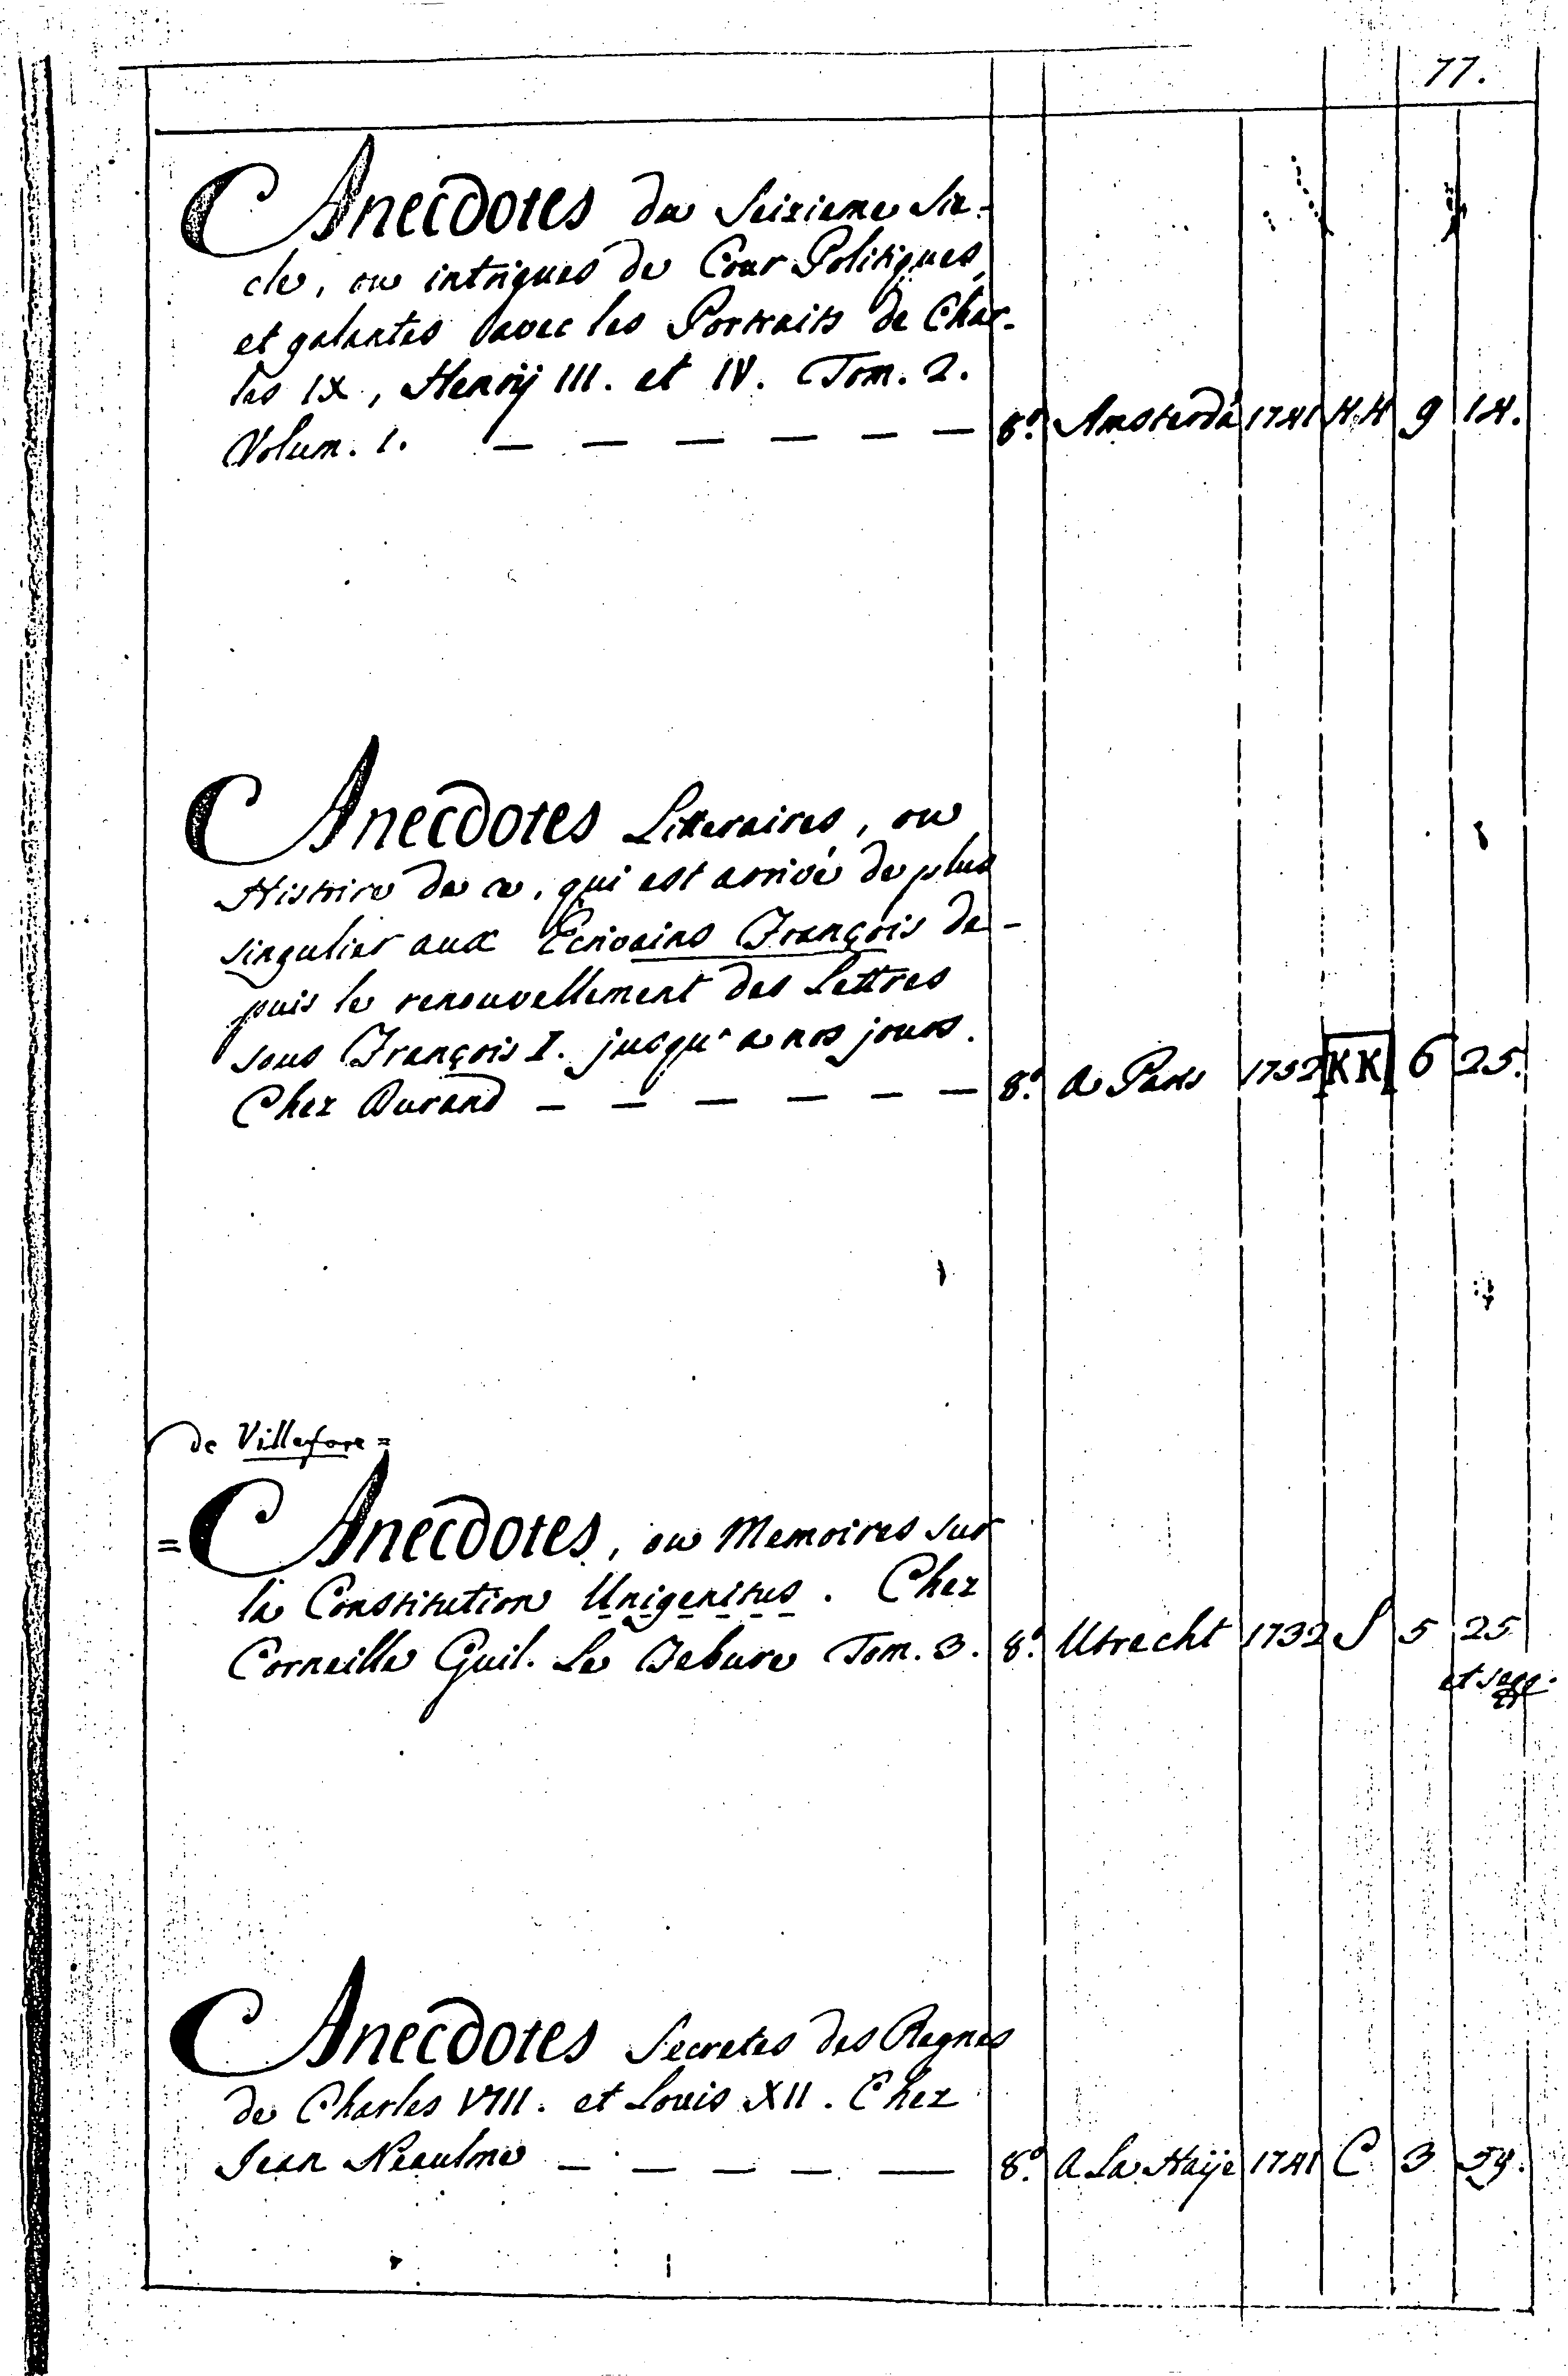 77.
Anecdotes du Seizieme Sie-
cle, ou intrigues de Cour Politiques,
et galantes avec les Portraits de Char-
les IX, Henrÿ III. et IV. Tom. 2.
Volum. 1. — — — — — — 8.º Amsterdã 1741 H.H 9 14.
Anecdotes Litteraires, ou
Histoire de ce, qui est arrivé de plus
singulier aux Ecrivains François de-
puis le renouvellement des Lettres
sous François I. jusqu'a nos jours.
Chez Durand — — — — — — 8.º a Paris 1752 KK 6 25.
de Villefore =
= Anecdotes, ou Memoires sur
la Constitution Unigenitus. Chez
Corneille Guil. Le Febure Tom. 3. 8.º Utrecht 1732 S 5 25
et seqq.
Anecdotes Secretes des Regnes
de Charles VIII. et Louis XII. Chez
Jean Neaulme — — — — — 8.º a La Haÿe 1741 C 3